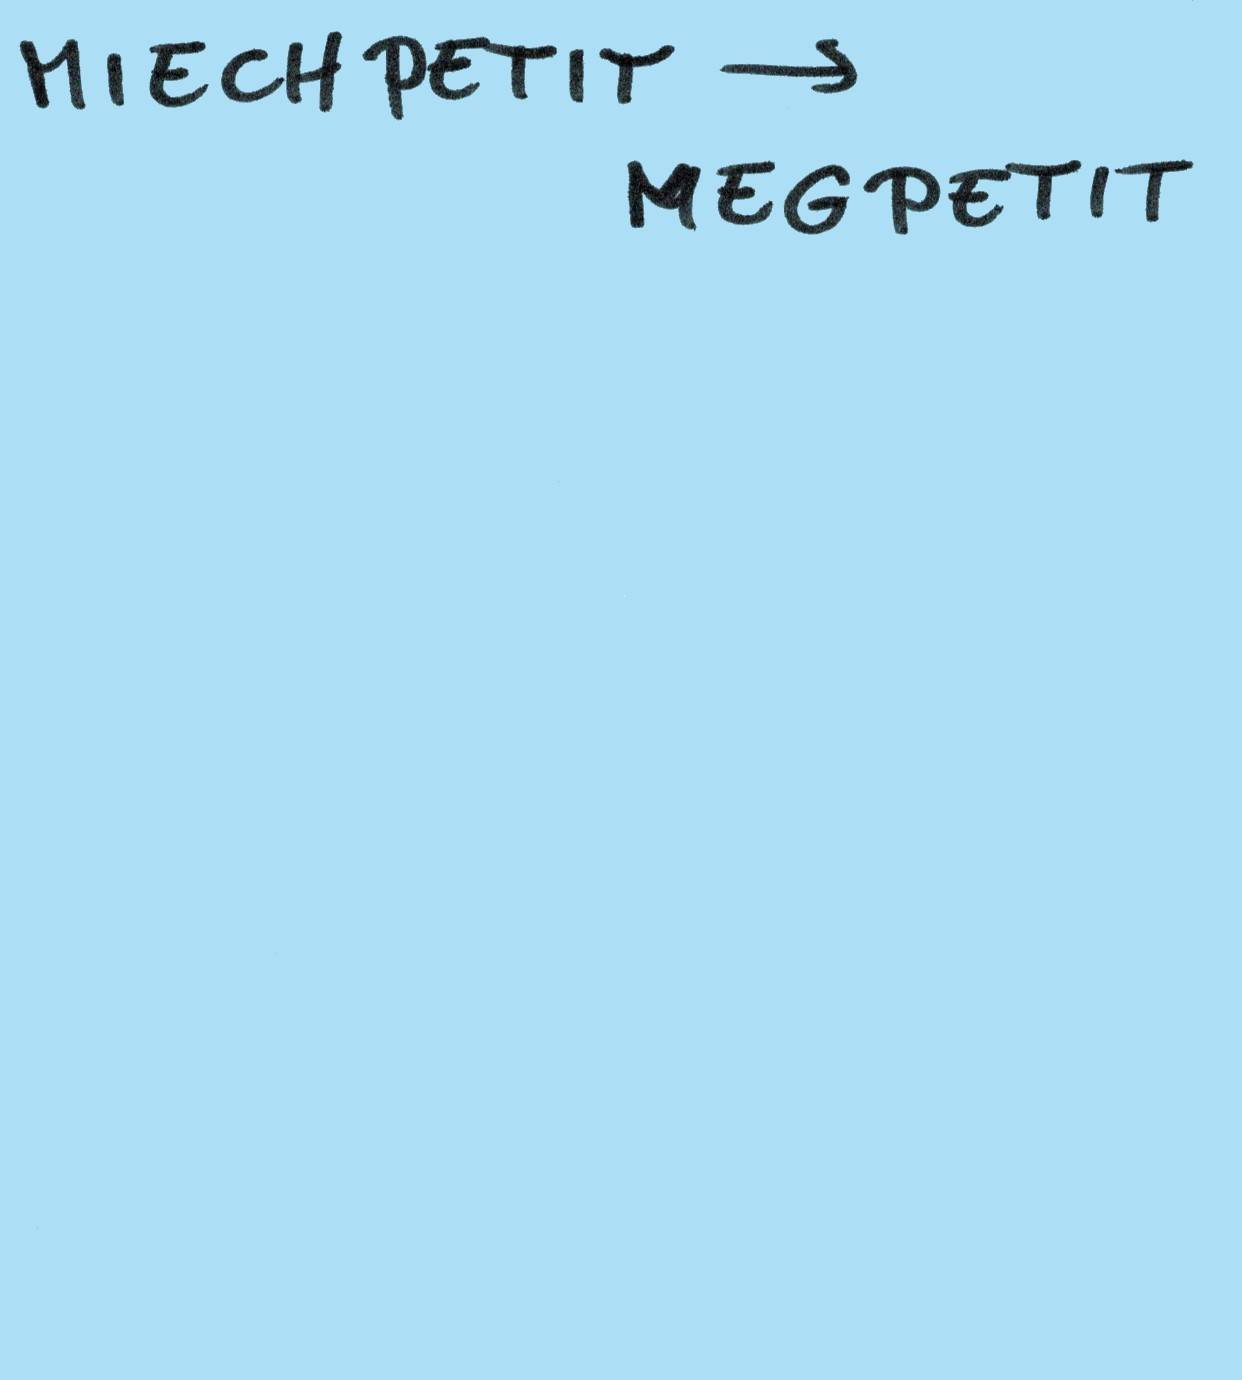 MIECHPETIT →
MEGPETIT